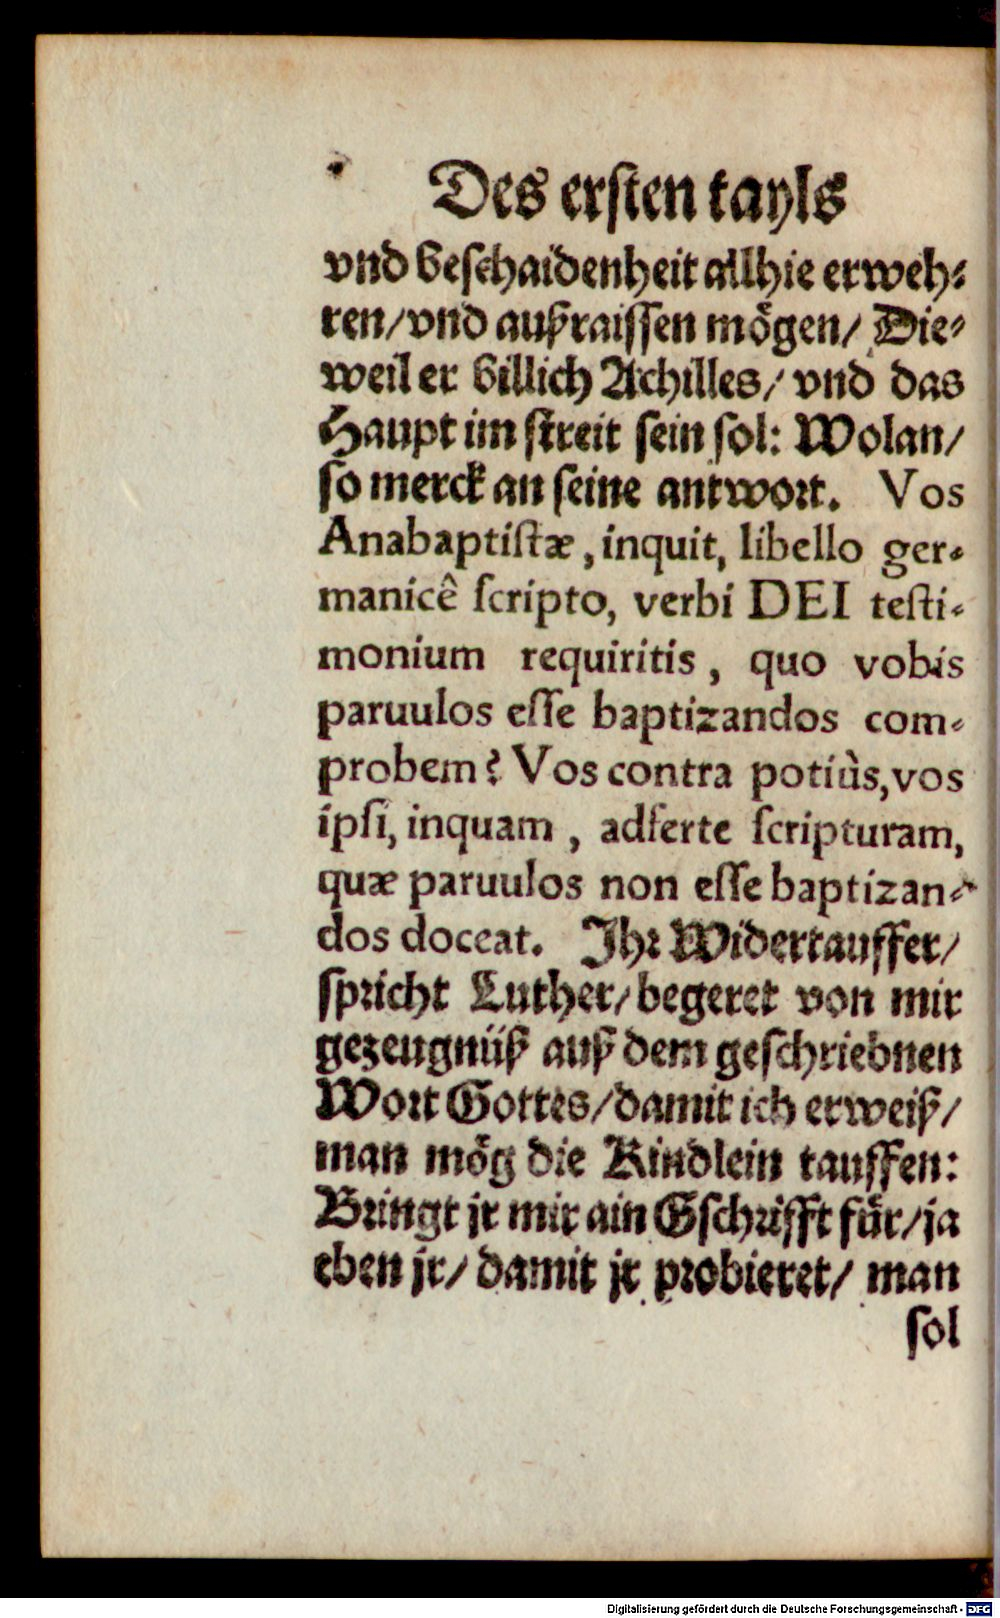 Des ersten tayls
vnd beschaidenheit allhie erweh⸗
ren/vnd außraissen mögen/ Die⸗
weil er billich Achilles/ vnd das
Haupt im streit sein sol: Wolan/
so merck an seine antwort. Vos
Anabaptistæ, inquit, libello ger-
manicê scripto, verbi DEI testi-
monium requiritis, quo vobis
paruulos esse baptizandos com-
probem? Vos contra potiùs, vos
ipsi, inquam, adferte scripturam,
quæ paruulos non esse baptizan-
dos doceat. Jhr Widertauffer/
spricht Luther/ begeret von mir
gezeugnüß auß dem geschriebnen
Wort Gottes/ damit ich erweiß/
man mög die Kindlein tauffen:
Bringt jr mir ain Gschrifft für/ ja
eben jr/ damit jr probieret/ man
sol
Digitalisierung gefördert durch die Deutsche Forschungsgemeinschaft - DFG